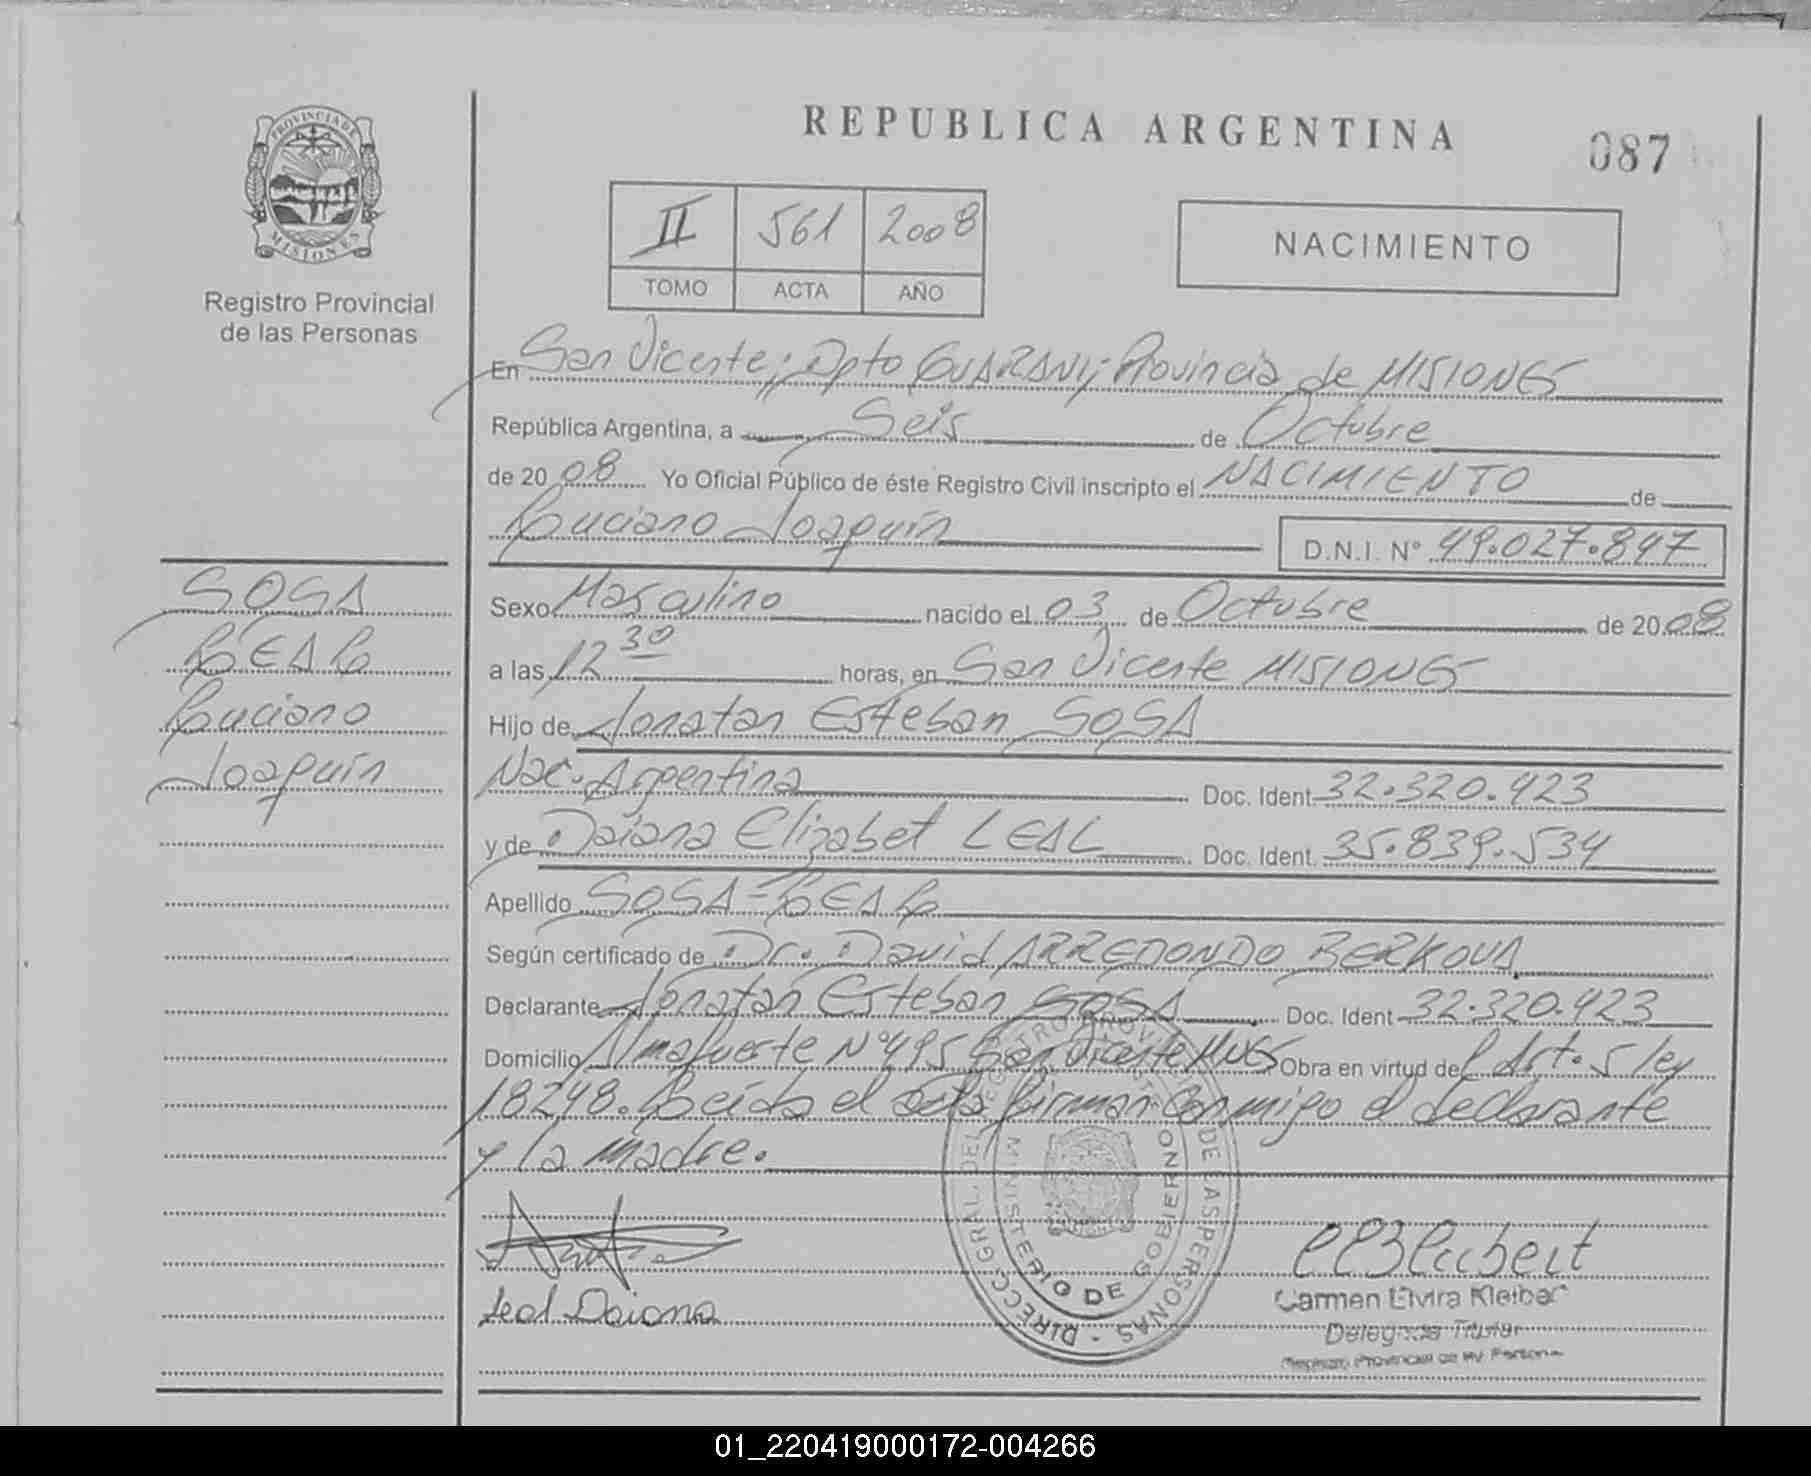 REPUBLICA ARGENTINA
087
PROVINCIA DE
MISIONES
Registro Provincial
de las Personas
II 561 2008
TOMO ACTA AÑO
NACIMIENTO
En San Vicente; Dpto GUARANI; Provincia de MISIONES
República Argentina, a Seis de Octubre
de 2008 Yo Oficial Público de éste Registro Civil inscripto el NACIMIENTO de
Luciano Joaquín D.N.I. Nº 49.027.847
SOSA
LEAL
Luciano
Joaquín
Sexo Masculino nacido el 03 de Octubre de 2008
a las 12 30 horas, en San Vicente MISIONES
Hijo de Jonatan Esteban SOSA
Nac. Argentina Doc. Ident 32.320.423
y de Daiana Elizabet LEAL Doc. Ident. 35.839.534
Apellido SOSA-LEAL
Según certificado de Dr. David ARREDONDO BERKOVA
Declarante Jonatan Esteban SOSA Doc. Ident 32.320.423
Domicilio Almafuerte Nº 495 San Vicente MNES Obra en virtud del Art. 5 ley
18248. Leída el acta firman conmigo el declarante
y la madre.
DIRECC. GRAL. DEL REGISTRO PROVINCIAL DE LAS PERSONAS -
MINISTERIO DE GOBIERNO
Leal Daiana
Carmen Elvira Kleibert
Delegada Titular
Registro Provincial de
01_220419000172-004266